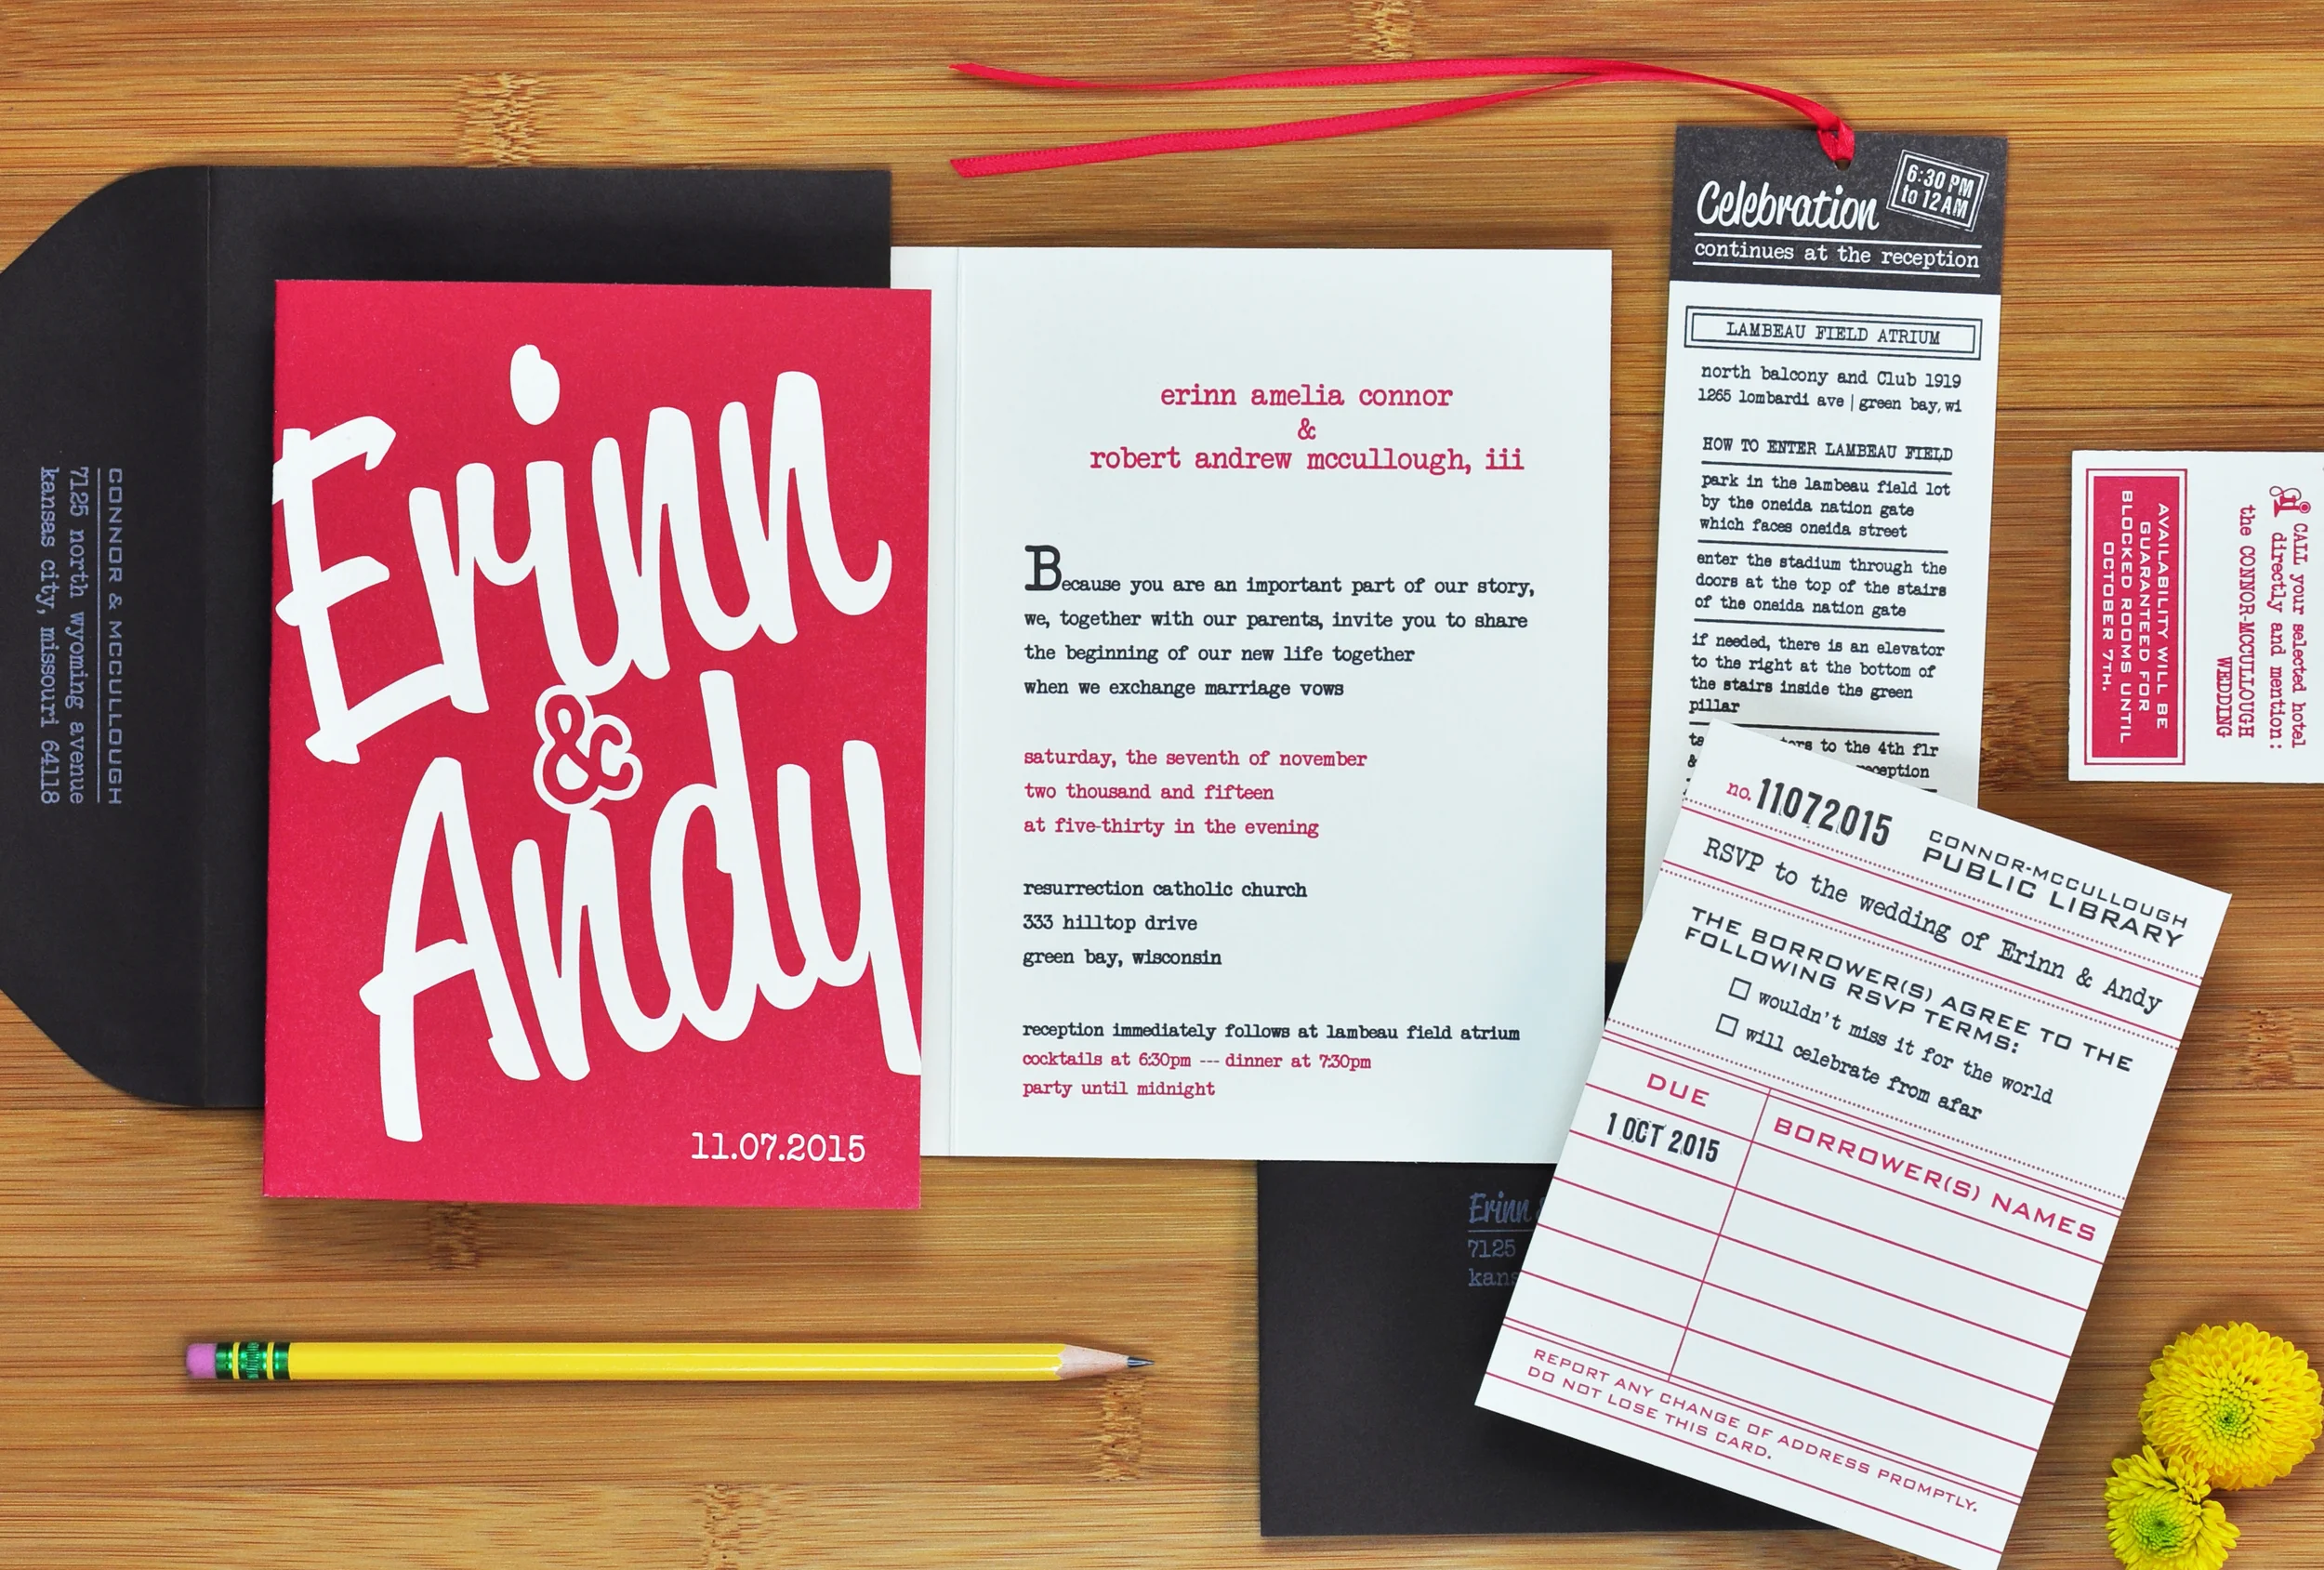 CONNOR & MCCULLOUGH
7125 north wyoming avenue
kansas city, missouri 64118
Erinn
&
Andy
11.07.2015
erinn amelia connor
&
robert andrew mccullough, iii
Because you are an important part of our story,
we, together with our parents, invite you to share
the beginning of our new life together
when we exchange marriage vows
saturday, the seventh of november
two thousand and fifteen
at five-thirty in the evening
resurrection catholic church
333 hilltop drive
green bay, wisconsin
reception immediately follows at lambeau field atrium
cocktails at 6:30pm --- dinner at 7:30pm
party until midnight
Celebration
6:30 PM
to 12 AM
continues at the reception
LAMBEAU FIELD ATRIUM
north balcony and Club 1919
1265 lombardi ave | green bay, wi
HOW TO ENTER LAMBEAU FIELD
park in the lambeau field lot
by the oneida nation gate
which faces oneida street
enter the stadium through the
doors at the top of the stairs
of the oneida nation gate
if needed, there is an elevator
to the right at the bottom of
the stairs inside the green
pillar
to the 4th flr
&
no. 11072015
CONNOR-MCCULLOUGH
PUBLIC LIBRARY
RSVP to the wedding of Erinn & Andy
THE BORROWER(S) AGREE TO THE
FOLLOWING RSVP TERMS:
wouldn't miss it for the world
will celebrate from afar
DUE
BORROWER(S) NAMES
1 OCT 2015
REPORT ANY CHANGE OF ADDRESS PROMPTLY.
DO NOT LOSE THIS CARD.
Erinn
7125
CALL your selected hotel
directly and mention:
the CONNOR-MCCULLOUGH
WEDDING
AVAILABILITY WILL BE
GUARANTEED FOR
BLOCKED ROOMS UNTIL
OCTOBER 7TH.